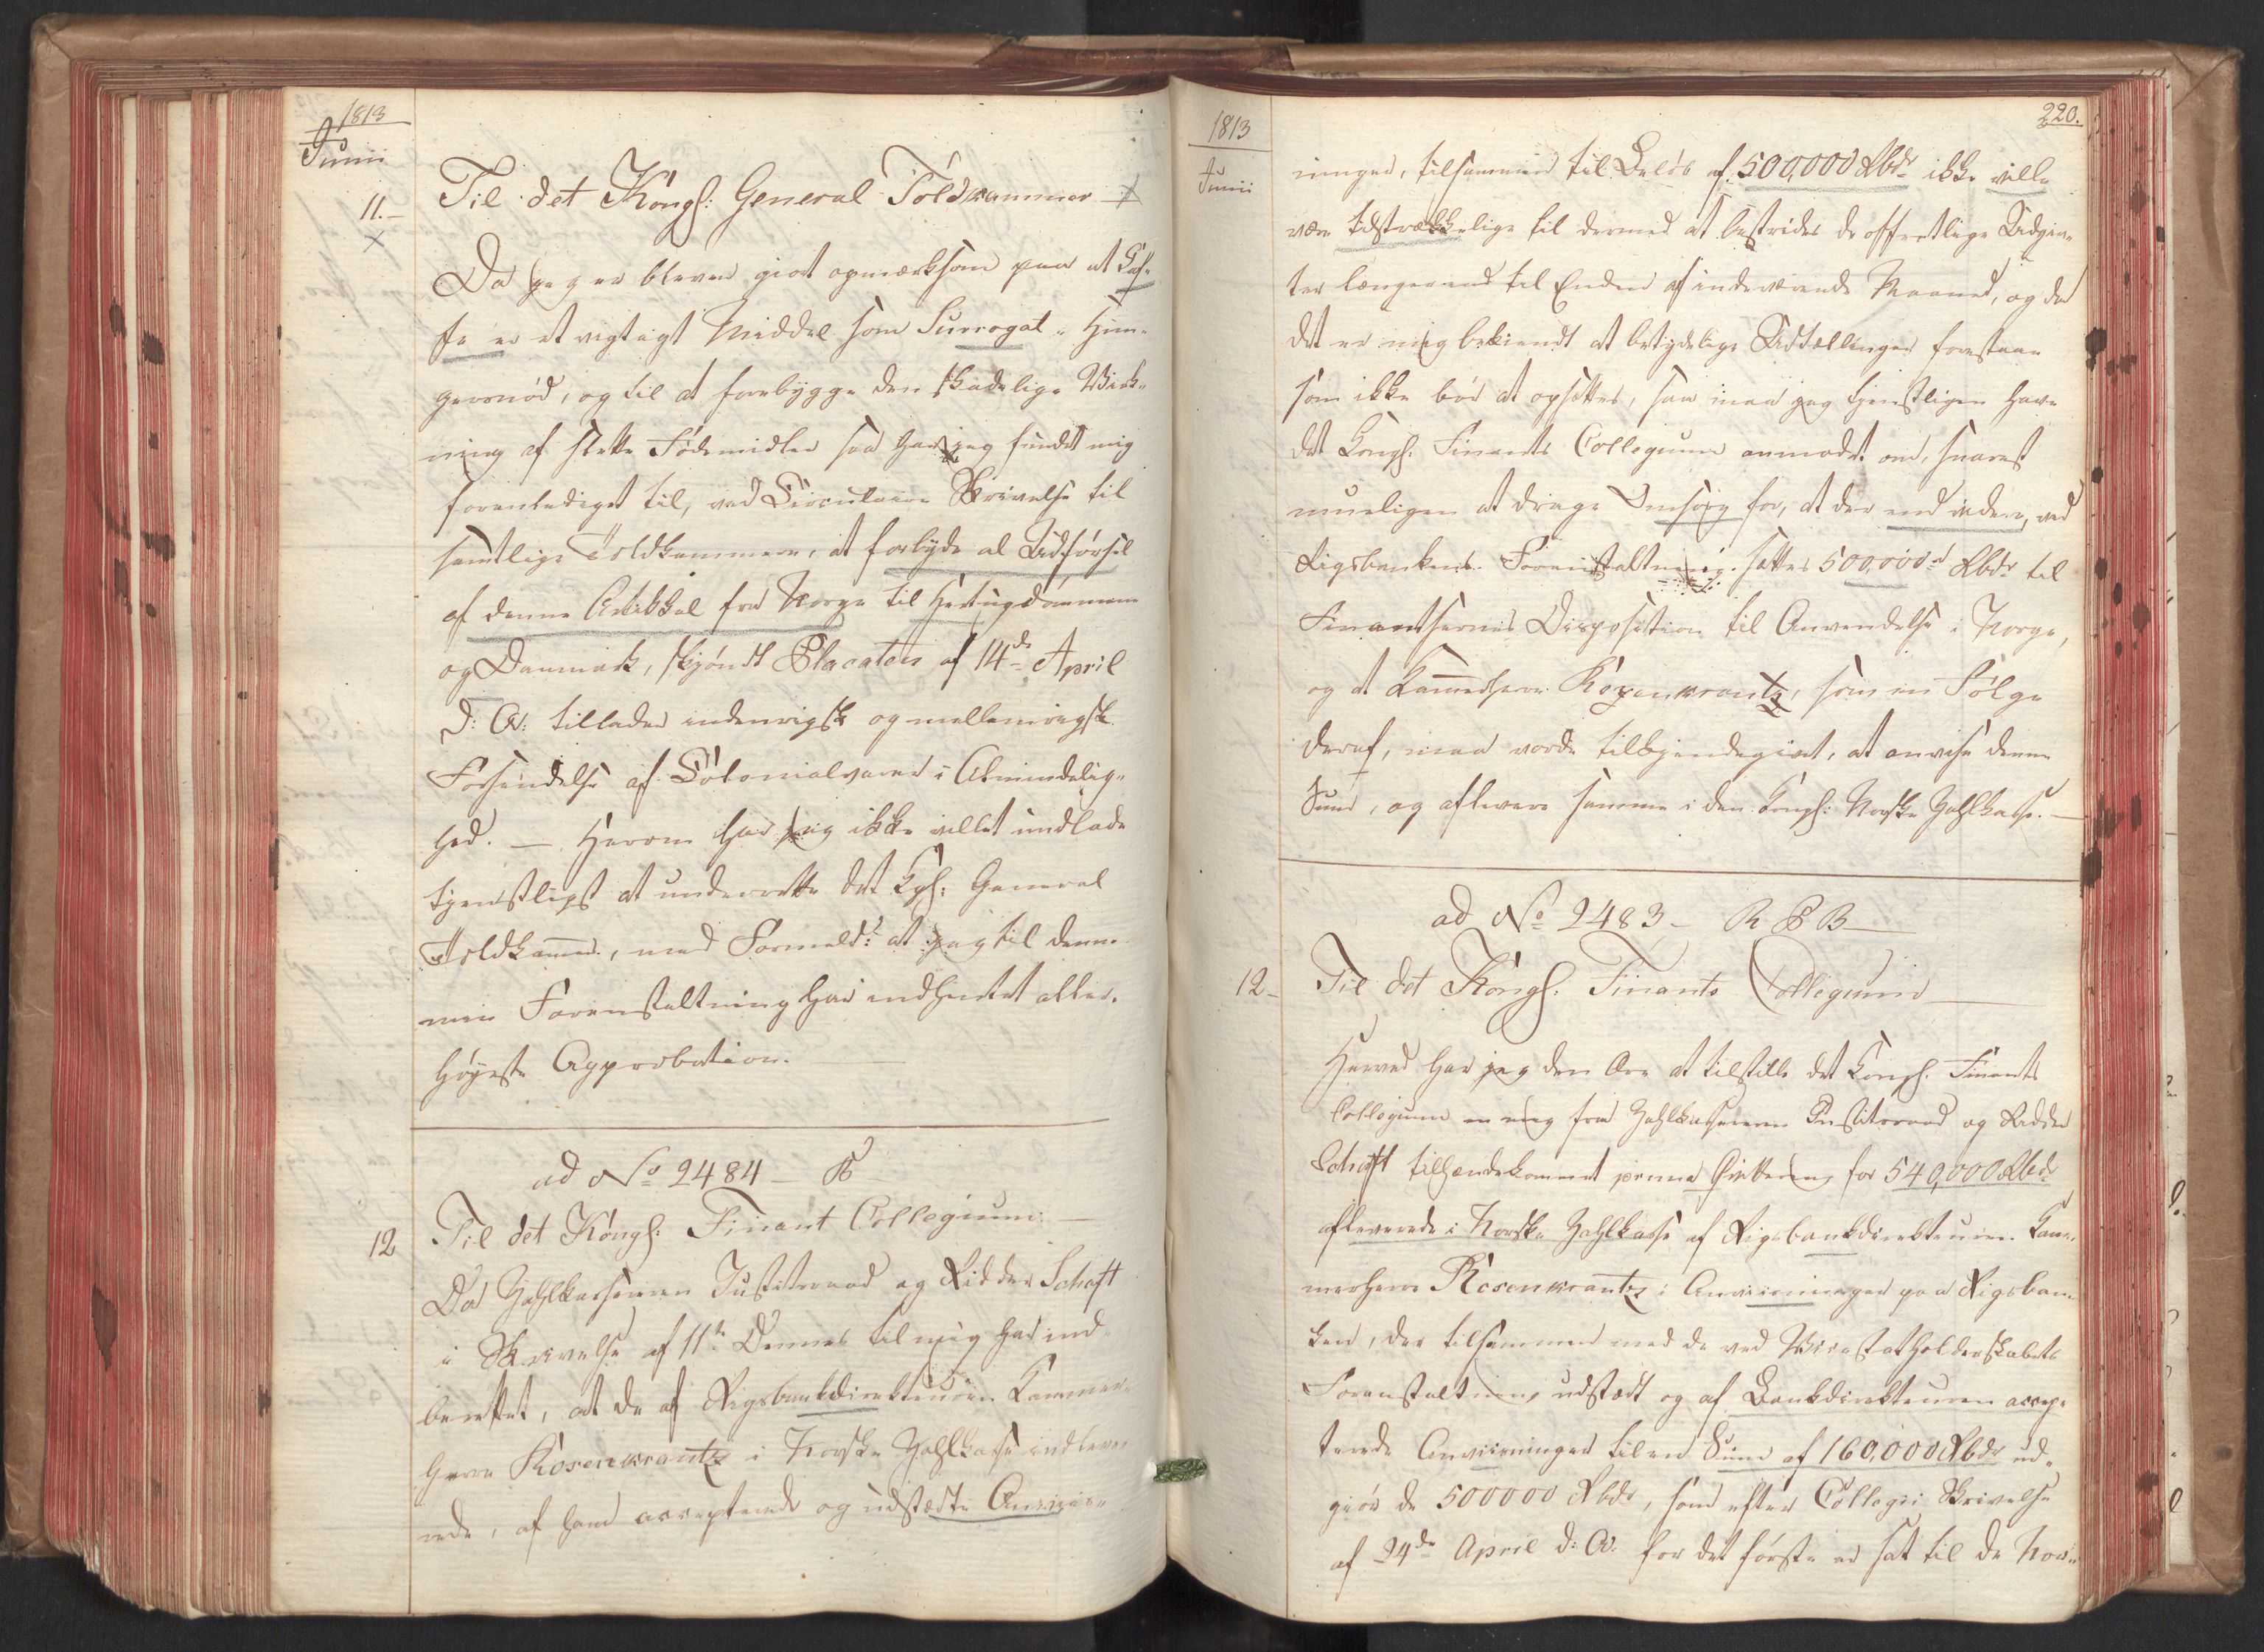 1813
Junii
11.-
Til det Kongl: General Toldkammer
Da jeg er bleven giort opmærksom paa at Caf-
fe er et vigtigt Middel som Surrogat i Hun-
gersnød, og til at forebygge den skadelige Virk-
ning af slette Födemidler saa har jeg fundet mig
foranlediget til, ved Circulaire Skrivelse til
samtlige Toldkammere, at forbyde al Udförsel
af denne Artikkel fra Norge til Hertugdömmene
og Danmark, skjöndt Placaten af 14de April
d: A: tillader indenrigsk og mellemrigsk
Forsendelse af Colonialvarer i Almindelig-
hed. — Herom har jeg ikke villet undlade
tjenstligst at underrette det Kgl: General
Toldkamer, med Formeld: at jeg til denne
min Foranstaltning har indhentet aller-
höyeste Approbation.
ad No 2484 - B
12
Til det Kongl: Finant Collegium —
Da Zahlkasserer Justitsraad og Ridder Schaft
i Skrivelse af 11te Dennes til mig har ind-
berettet, at de af Rigsbankdirekteuren Kammer-
herre Rosenkrantz i Norske Zahlkasse indleve-
rede, af ham accepterede og udstædte Anviis-
1813
Junii
220.
ninger, tilsammen til Belöb af 500,000 Rbdr ikke ville
være tilstrækkelige til dermed at bestride de offentlige Udgiv-
ter længer end til Enden af indeværende Maaned, og da
det er mig bekiendt at betydelige Udtællinger forestaae
som ikke bör at opsettes, saa maa jeg tjenstligen have
det Kongl. Finants Collegium anmodet om, snarest
mueligen at drage Omsorg for, at der end videre, ved
Rigsbankens Foranstaltning. settes 500,000d Rbdr til
Finantsernes Disposition til Anvendelse i Norge,
og at Kammerherre Rozenkrantz, som en Fölge
deraf, maa vorde tilkjendegivet, at anvise denne
Sum, og aflevere samme i den Kongl: Norske Zahlkasse. —
ad No 2483 - R S B
12-
Til det Kongl. Finants Collegium
Herved har jeg den Ære at tilstille det Kongl. Finants
Collegium en mig fra Zahlkasserer Justitsraad og Ridder
Schaft tilhændekommet prima Qvittering for 540,000 Rbdr
afleverede i Norske Zahlkasse af Rigsbankdirekteuren Kam-
merherre Rosenkrantz i Anviisninger paa Rigsban-
ken, der tilsammen med de ved Vicestatholderskabets
Foranstaltning udstædt og af Bankdirekteuren accep-
terede Anviisninger til en Sum af 160,000 Rbdr ud-
giör de 500000 Rbdr, som efter Collegii Skrivelse
af 24de April d: A: for det förste er sat til de Nor-